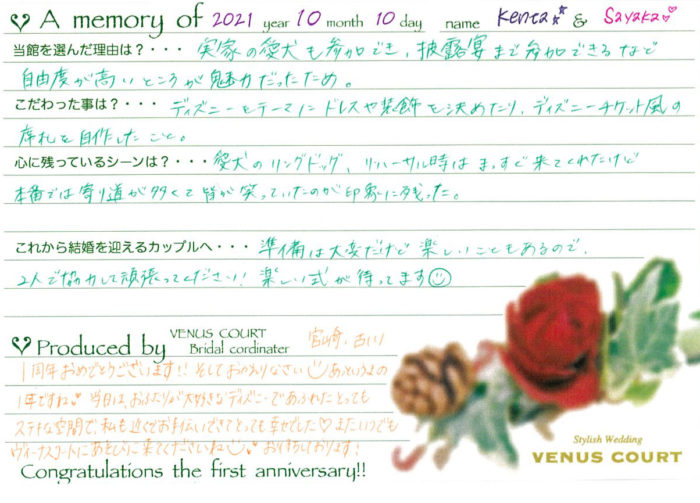 A memory of 2021 year 10 month 10 day name Kenta & Sayaka
当館を選んだ理由は？・・・ 実家の愛犬も参加でき、披露宴まで参加できるなど
自由度が高いところが魅力だったため。
こだわった事は？・・・ ディズニーをテーマにドレスや装飾を決めたり、ディズニーチケット風の
席札を自作したこと。
心に残っているシーンは？・・・ 愛犬のリングドッグ、リハーサル時はまっすぐ来てくれたけど
本番では寄り道が多くて皆が笑っていたのが印象に残った。
これから結婚を迎えるカップルへ・・・ 準備は大変だけど楽しいこともあるので、
2人で協力して頑張ってください！楽しい式が待ってます
Produced by VENUS COURT Bridal cordinater 宮崎、古川
1周年おめでとうございます!! そしておかえりなさい あっというまの
1年ですね 当日は、おふたりが大好きなディズニーであふれたとっても
ステキな空間で、私も近くでお手伝いできてとっても幸せでした♡またいつでも
ヴィーナスコートにあそびに来てくださいね お待ちしております！
Congratulations the first anniversary!!
Stylish Wedding
VENUS COURT